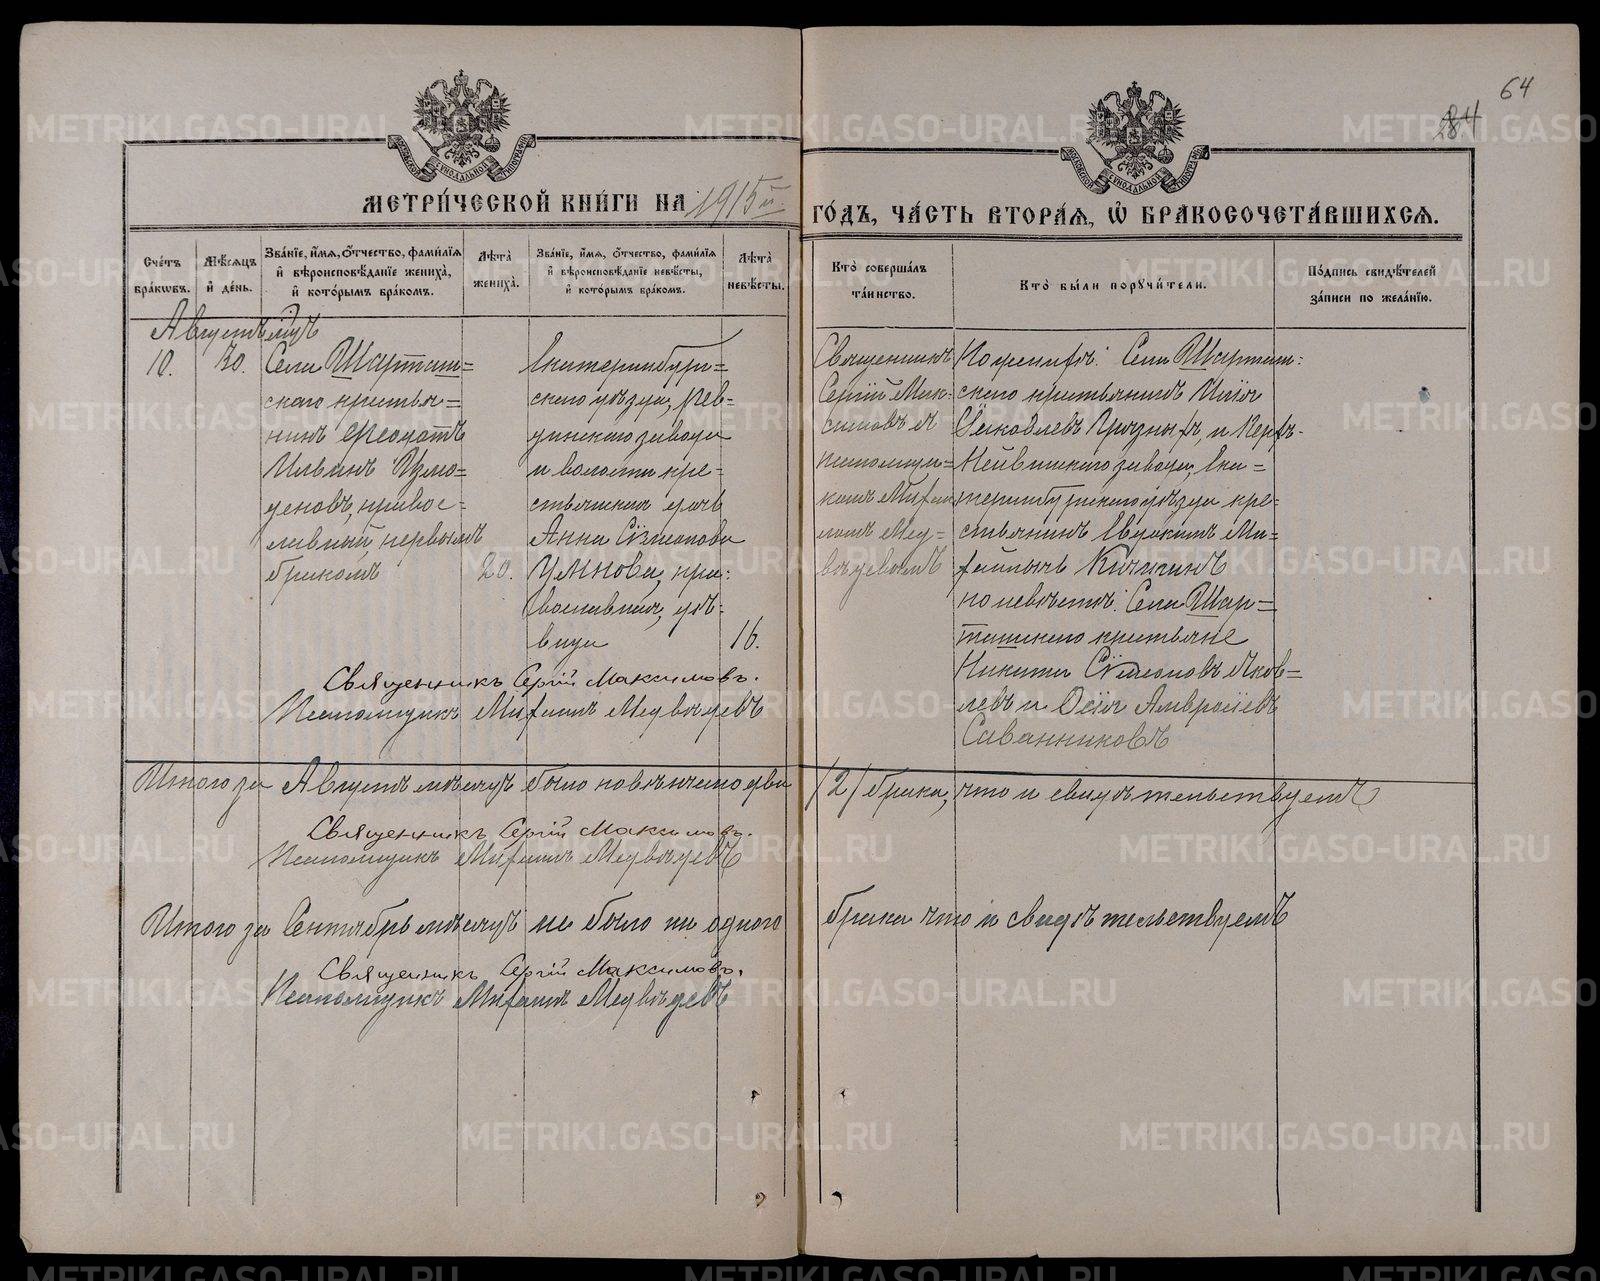 64
84
МЕТРИ́ЧЕСКОЙ КНИ́ГИ НА 1915й
ГО́ДЪ, ЧА́СТЬ ВТОРА́Я, Ѿ БРАКОСОЧЕТА́ВШИХСЯ.
Сче́тъ бра́кωвъ.
Мѣ́сяцъ и҆ де́нь.
Зва́нїе, и҆́мя, ѻ҆́тчество, фами́лїя
и҆ вѣроисповѣ́данїе жениха̀,
и҆ кото́рымъ бра́комъ.
Лѣ́та жениха̀.
Зва́нїе, и҆́мя, ѻ҆́тчество, фами́лїя
и҆ вѣроисповѣ́данїе невѣ́сты,
и҆ кото́рымъ бра́комъ.
Лѣ́та невѣ́сты.
Кто̀ соверша́лъ та́инство.
Кто̀ бы́ли порꙋчи́тели.
По́дпись свидѣ́телей за́писи по жела́нїю.
Августъ мцъ
10.
30.
Села Шарташ=
скаго крестья=
нинъ
Ильинъ Измо=
деновъ, правос=
лавный, первымъ
бракомъ
20.
Екатеринбург=
скаго уѣзда, Рев=
динскаго завода
и волости кре=
стьянская дочь
Анна Сѵмеонова
Умнова, пра=
вославная, дѣ=
вица
16.
Священникъ
Сергій Мак=
симовъ и
псаломщи=
комъ Михаи
ломъ Мед=
вѣдевымъ
По женихѣ: Села Шарташ=
скаго крестьянинъ Илія
Іаковлевъ Грязныхъ, и Верхъ-
Нейвинскаго завода, Ека=
теринбургскаго уѣзда кре=
стьянинъ Евдокимъ Ми=
хайловъ
по невѣстѣ: Села Шар=
ташскаго крестьяне
Никита Сѵмеоновъ Яков=
левъ и Осія Амвросіевъ
Саванниковъ
Священникъ Сергій Максимовъ.
Псаломщикъ Михаилъ Медвѣдевъ
Итого за Августъ мѣсяцъ было повѣнчано два /2/ брака, что и свидѣтельствуемъ
Священникъ Сергій Максимовъ.
Псаломщикъ Михаилъ Медвѣдевъ
Итого за Сентябрь мѣсяцъ не было ни одного брака что и свидѣтельствуемъ
Священникъ Сергій Максимовъ.
Псаломщикъ Михаилъ Медвѣдевъ
METRIKI.GASO-URAL.RU